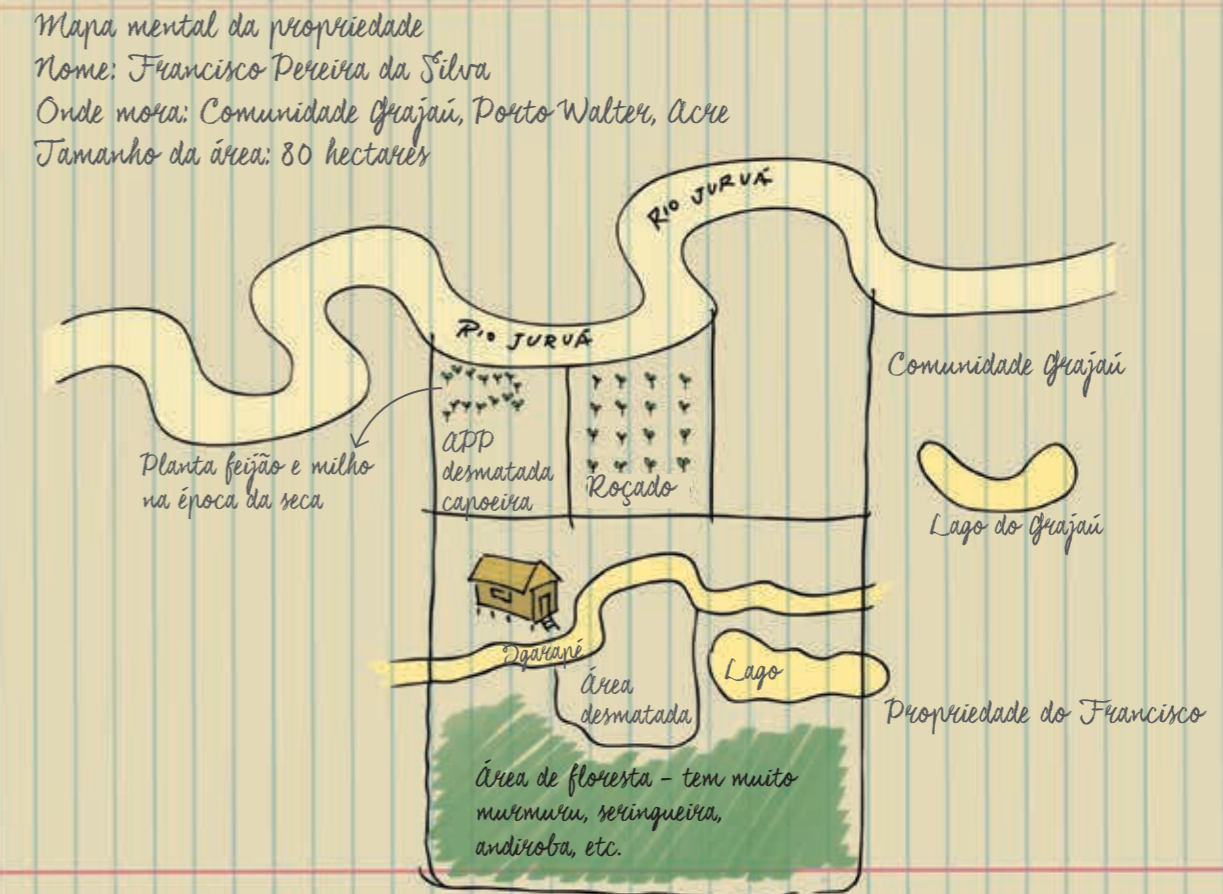 Mapa mental da propriedade
Nome: Francisco Pereira da Silva
Onde mora: Comunidade Grajaú, Porto Walter, Acre
Tamanho da área: 80 hectares
RIO JURUÁ
RIO JURUÁ
Comunidade Grajaú
Planta feijão e milho
na época da seca
APP
desmatada
capoeira
Roçado
Lago do Grajaú
Igarapé
Área
desmatada
Lago
Propriedade do Francisco
Área de floresta – tem muito
murmuru, seringueira,
andiroba, etc.